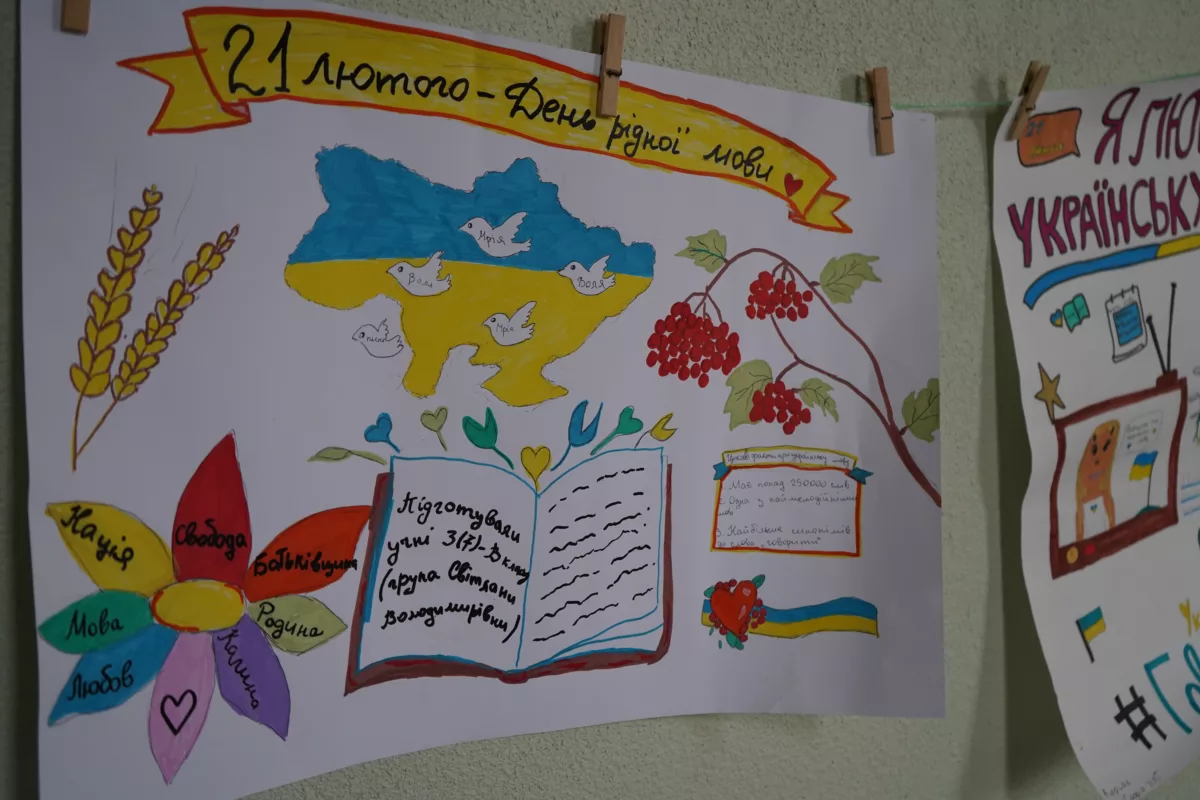 21 лютого - День рідної мови
Мрія
Воля
Воля
Мрія
Пісня
Нація
Свобода
Батьківщина
Мова
Родина
Любов
Калина
Підготували
учні 3(7)-В класу
(група Світлани
Володимирівни)
Цікаві факти про українську мову
1. Має понад 250000 слів
2. Одна з наймелодійніших
мов
3. Найбільше синонімів
до слова "говорити"
21
Я ЛЮ
УКРАЇНСЬКУ